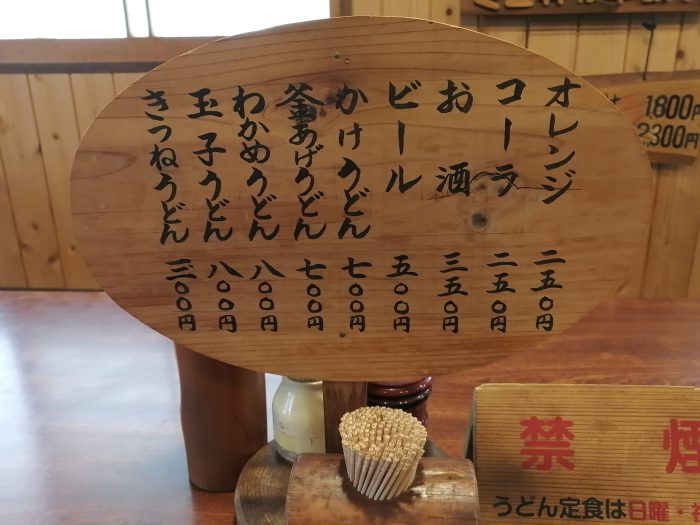 オレンジ 二五〇円
コーラ 二五〇円
お酒 三五〇円
ビール 五〇〇円
かけうどん 七〇〇円
釜あげうどん 七〇〇円
わかめうどん 八〇〇円
玉子うどん 八〇〇円
きつねうどん 三〇〇円
1,800円
2,300円
禁煙
うどん定食は日曜・